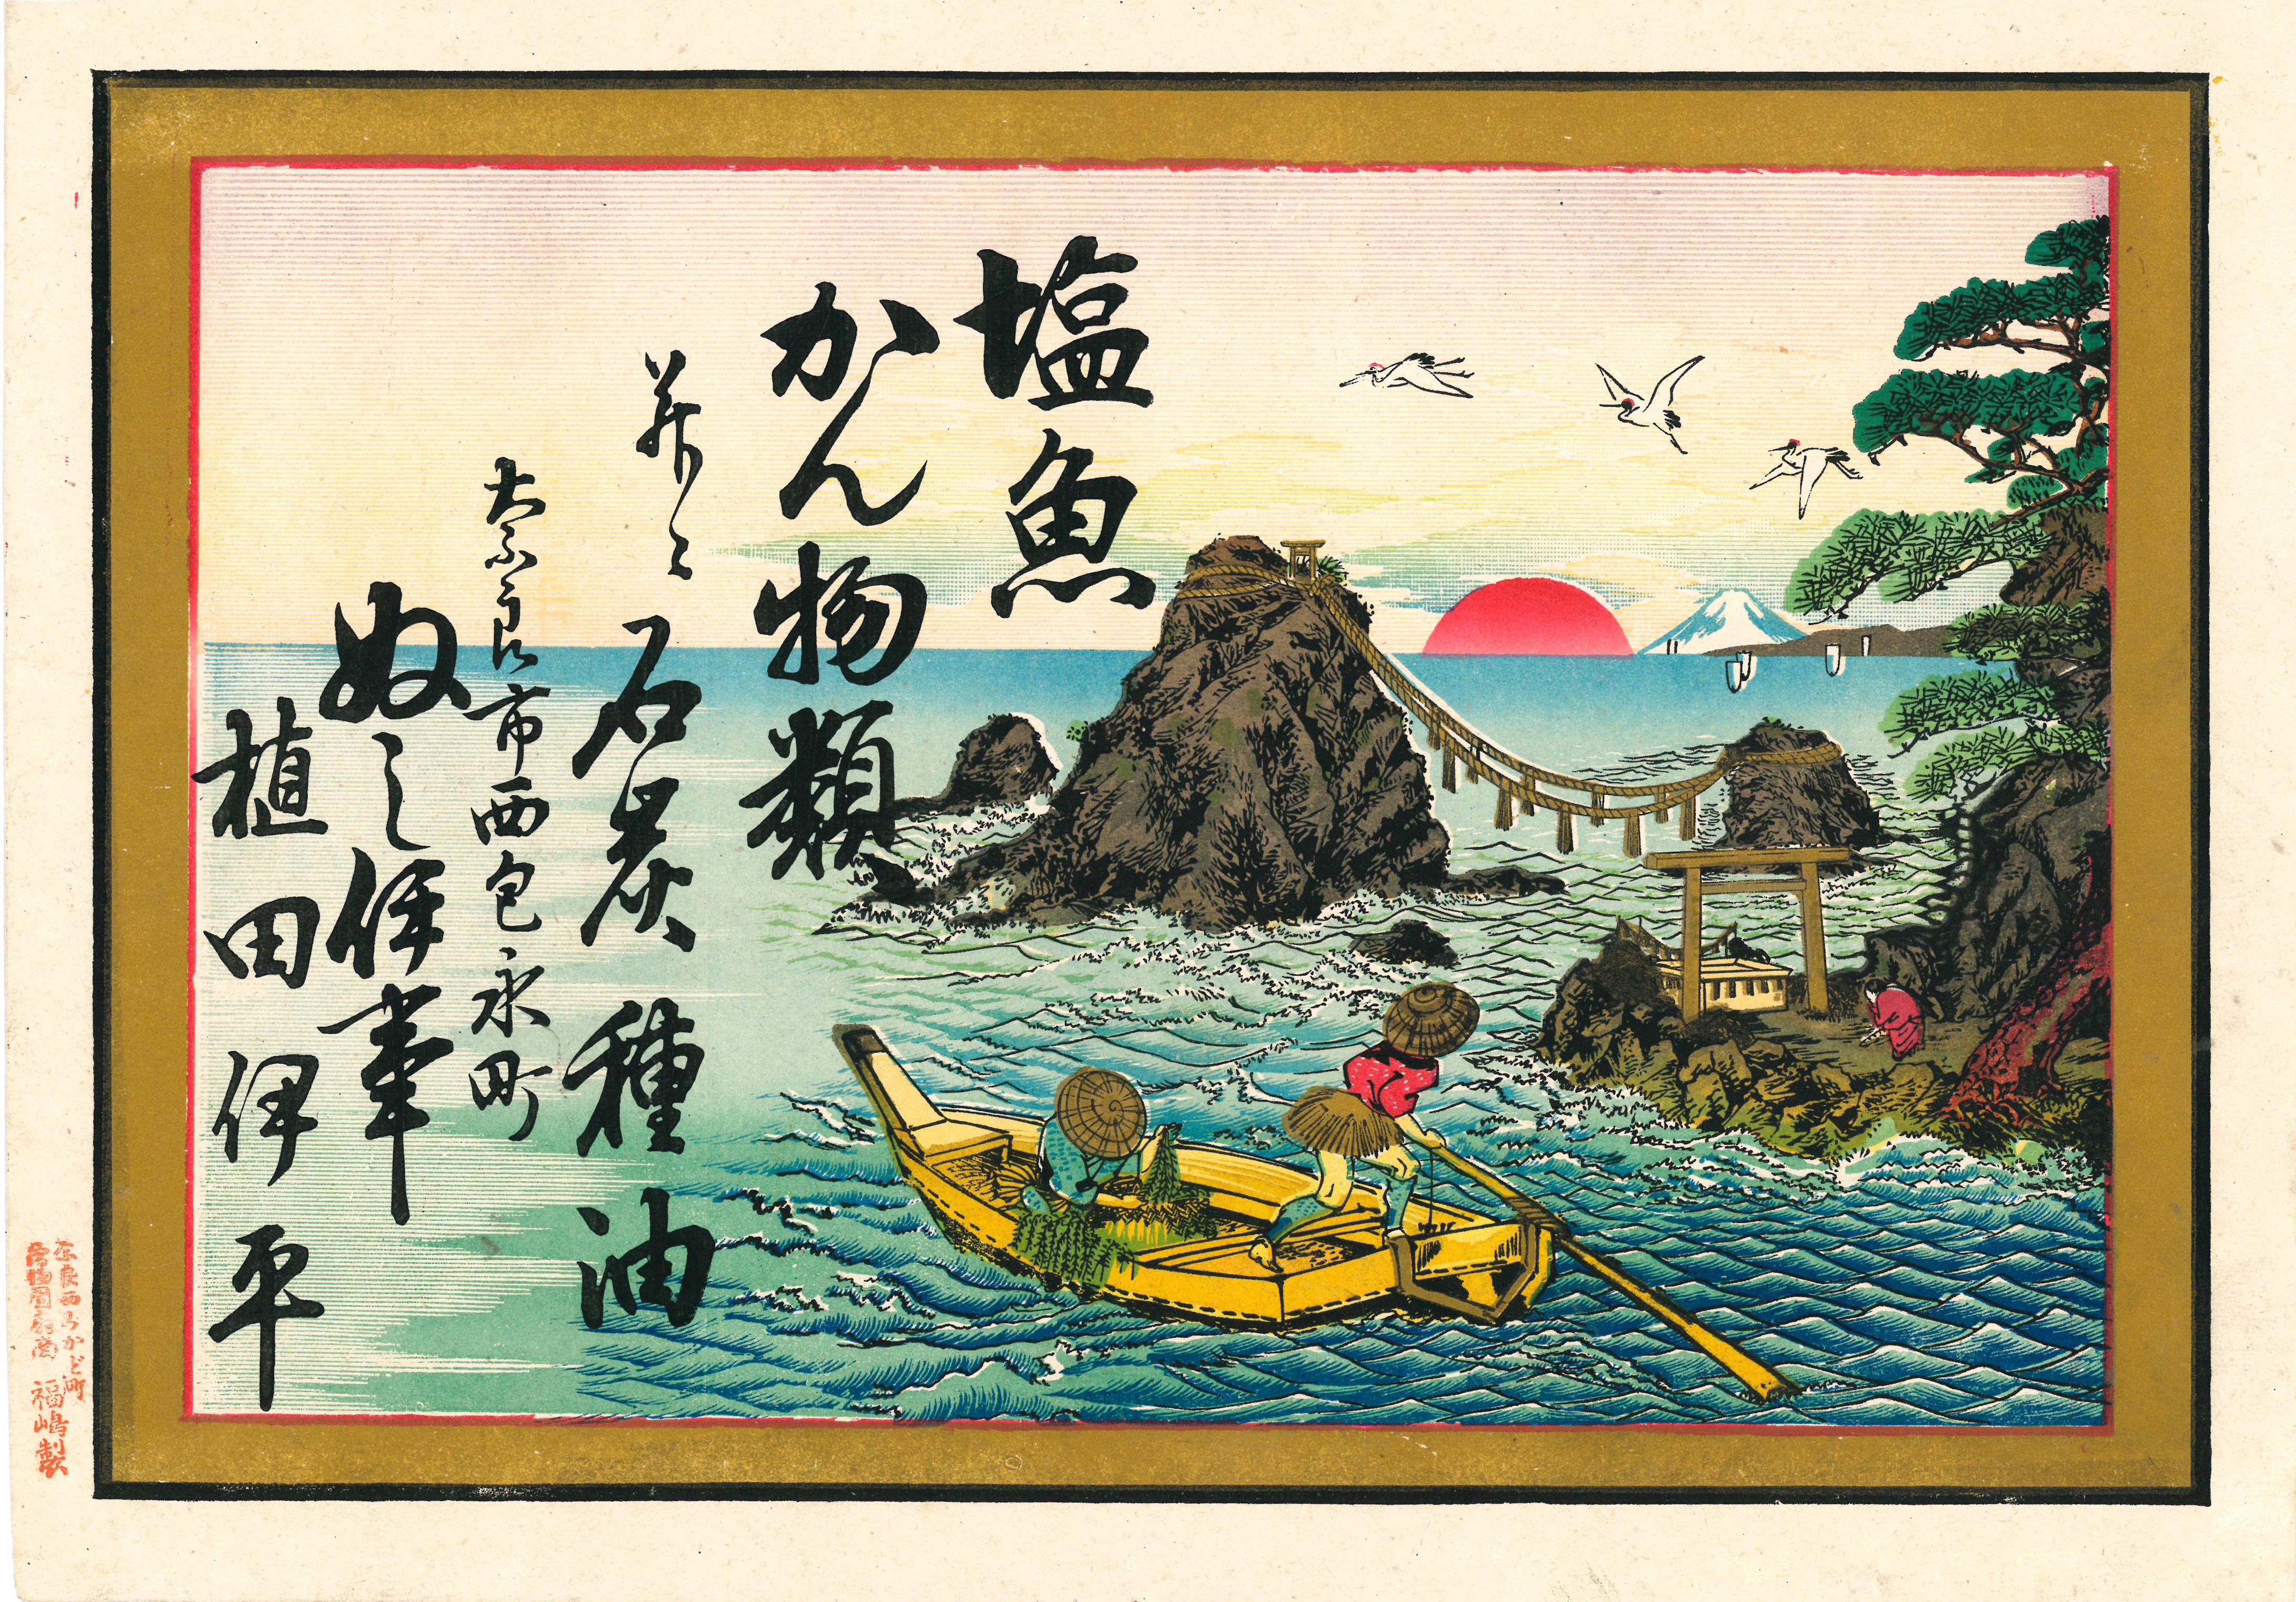 塩魚
かん物類
並ニ
石炭 種油
大奈良市西包永町
ぬし伊事
植田伊平
奈良西らかど町
福嶋製